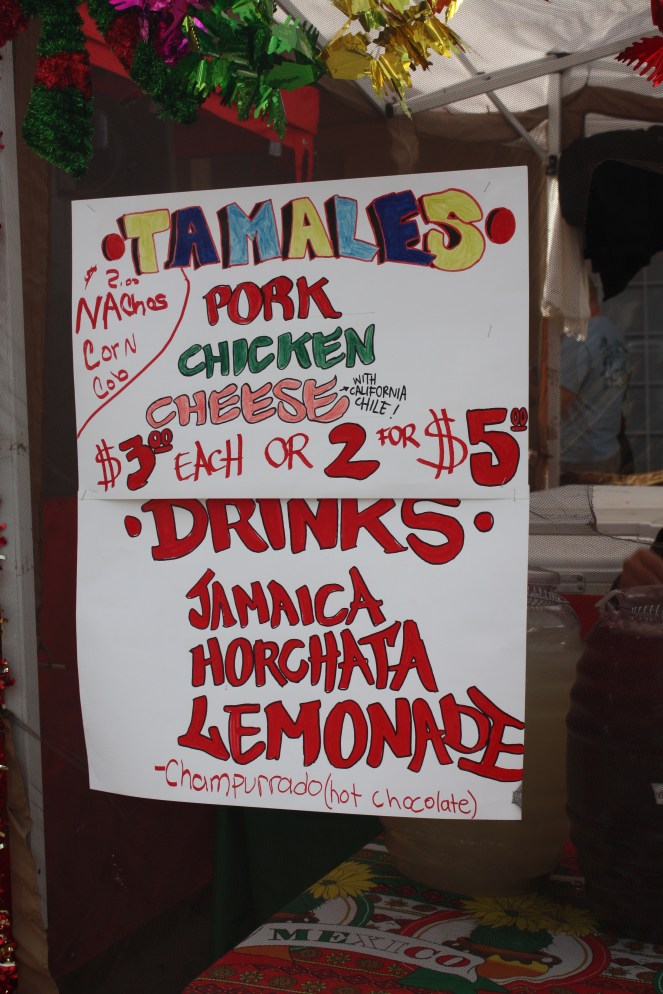 TAMALES
$2.00
NAchos
Corn
Cob
PORK
CHICKEN
CHEESE
WITH
CALIFORNIA
CHILE!
$3.00 EACH OR 2 FOR $5.00
DRINKS
JAMAICA
HORCHATA
LEMONADE
-Champurrado (hot chocolate)
MEXICO